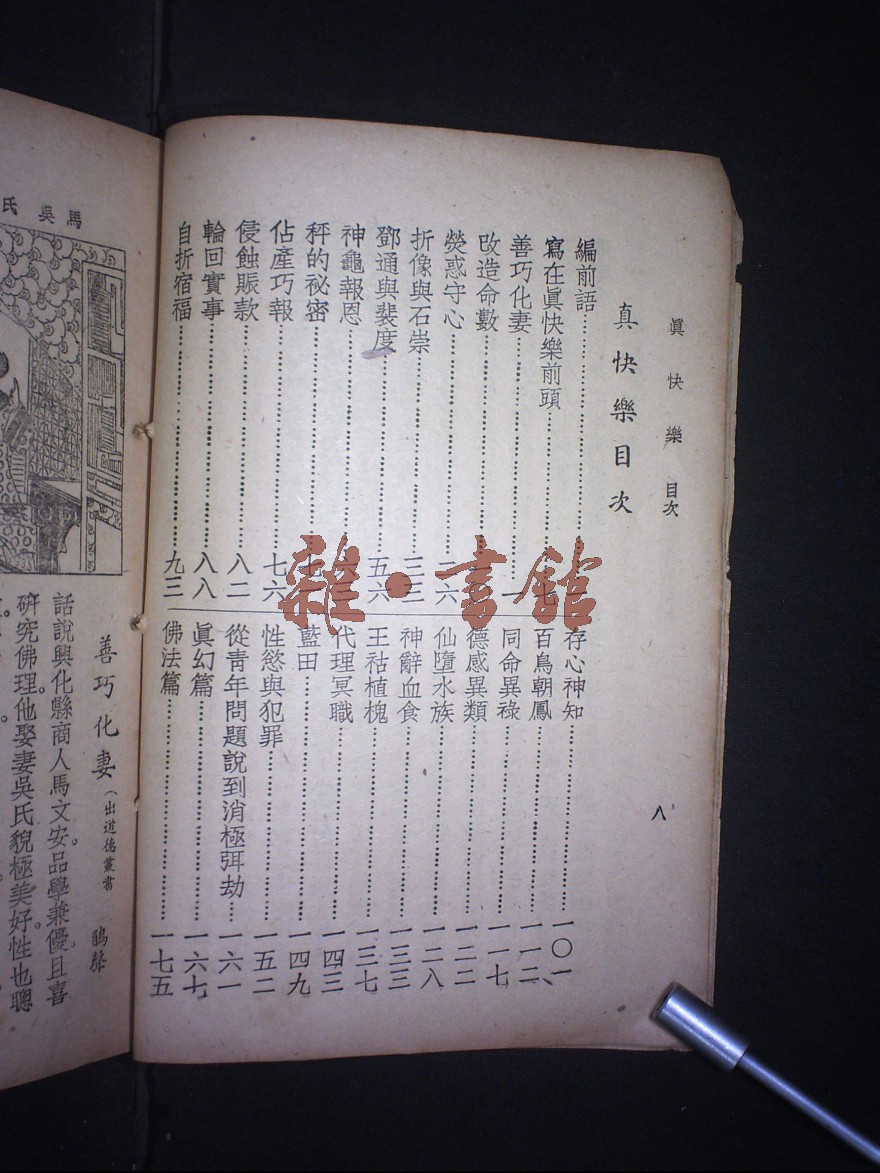 眞快樂 目次
八
真快樂目次
編前語
寫在眞快樂前頭
善巧化妻……一
改造命數
熒惑守心……一六
折像與石崇……三三
鄧通與裴度……五六
神龜報恩
秤的祕密
佔產巧報……七六
侵蝕賬款……八二
輪回實事……八八
自折宿福……九三
存心神知……一〇一
百鳥朝鳳……一一二
同命異祿……一一七
德感異類……一二二
仙墮水族……一二八
神辭血食……一三三
王祜植槐……一三七
代理冥職……一四三
藍田……一四九
性慾與犯罪……一五二
從靑年問題說到消極弭劫……一六一
眞幻篇……一六七
佛法篇……一七五
雜·書館
馬吳氏
善巧化妻(出道德叢書
鵑聲
話說興化縣商人馬文安。品學兼優。且喜
研究佛理。他娶妻吳氏。貌極美好。性也聰